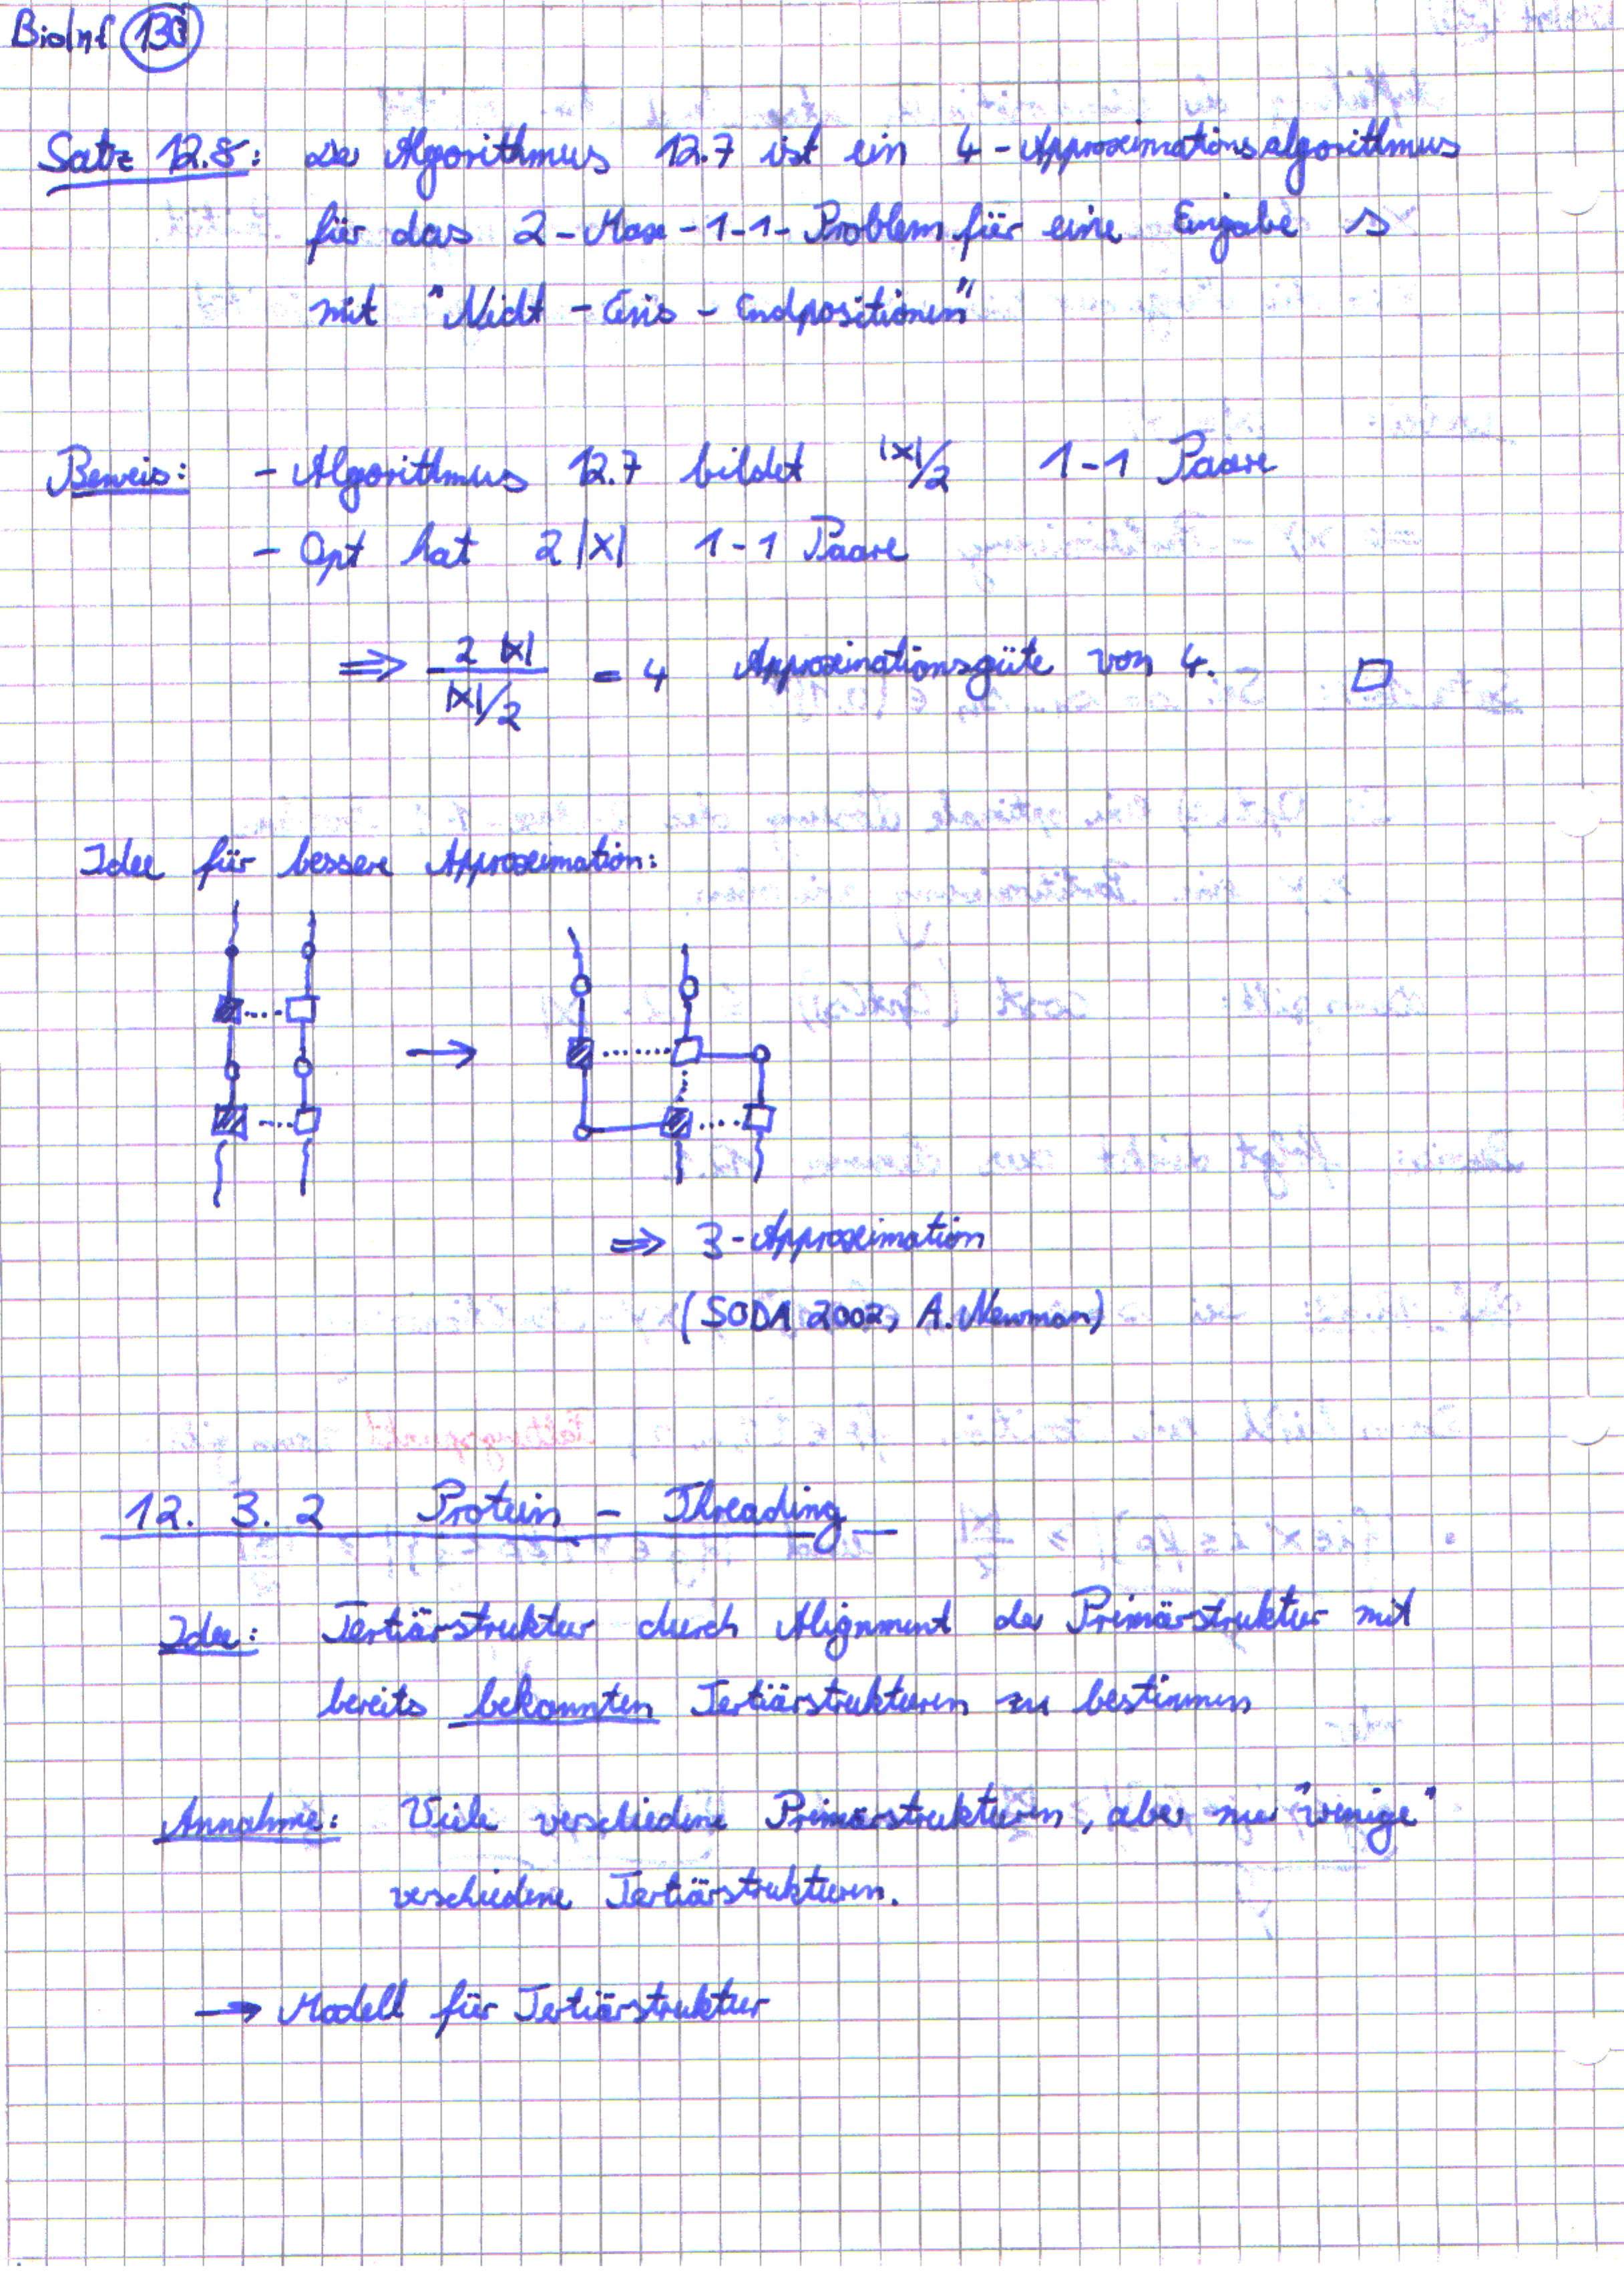 BioInf 130
Satz 12.8: Der Algorithmus 12.7 ist ein 4-Approximationsalgorithmus
für das 2-Max-1-1-Problem für eine Eingabe s
mit "Nicht-Eins-Endpositionen"
Beweis: - Algorithmus 12.7 bildet |X|/2 1-1 Paare
- Opt hat 2|X| 1-1 Paare
⇒ 2|X| / |X|/2 = 4 Approximationsgüte von 4. □
Idee für bessere Approximation:
→
⇒ 3-Approximation
(SODA 2002, A. Newman)
12.3.2 Protein-Threading
Idee: Tertiärstruktur durch Alignment der Primärstruktur mit
bereits bekannten Tertiärstrukturen zu bestimmen
Annahme: Viele verschiedene Primärstrukturen, aber nur "wenige"
verschiedene Tertiärstrukturen.
→ Modell für Tertiärstruktur